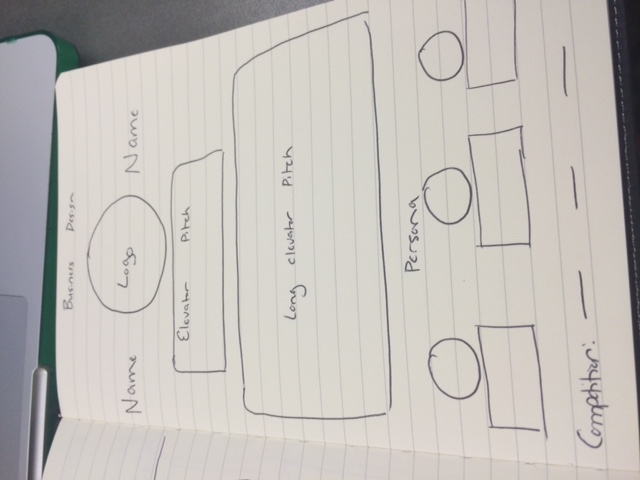 Business Design
Name Logo Name
Elevator Pitch
Long elevator Pitch
Persona
Competition: